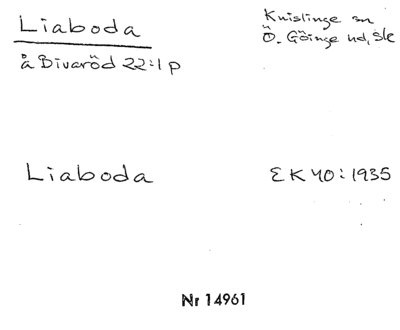 Liaboda
Knislinge sn
Ö. Göinge hd, Sk
å Bivaröd 22:1 p
Liaboda
EK 40:1935
Nr 14961